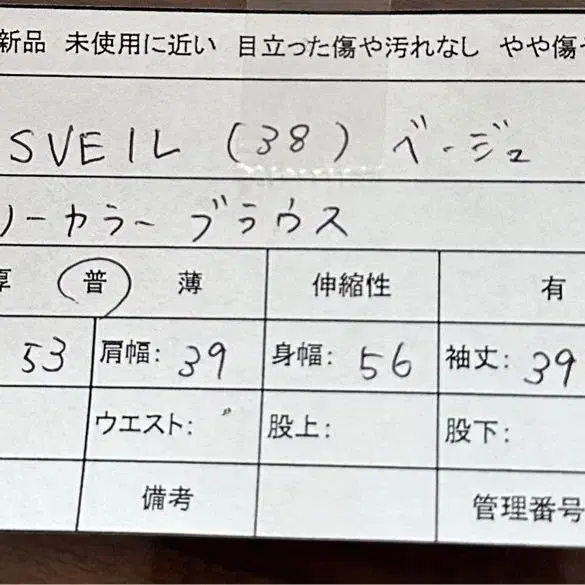 新品 未使用に近い 目立った傷や汚れなし やや傷
SVEIL (38) ベージュ
リーカラー ブラウス
厚 普 薄 伸縮性 有
53 肩幅: 39 身幅: 56 袖丈: 39
ウエスト: 股上: 股下:
備考 管理番号